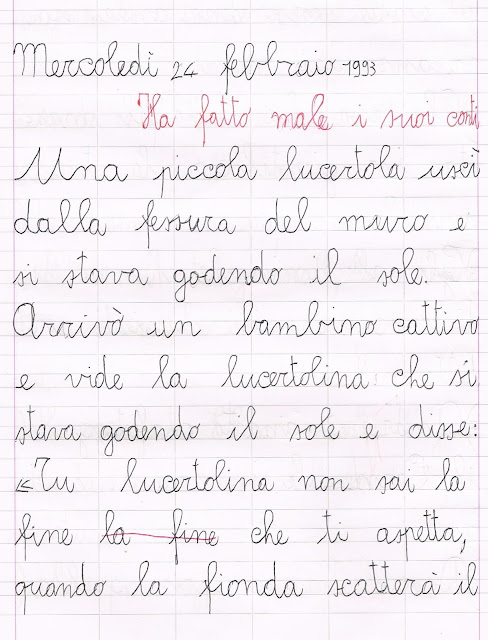 Mercoledì 24 febbraio 1993
Ha fatto male i suoi conti
Una piccola lucertola uscì
dalla fessura del muro e
si stava godendo il sole.
Arrivò un bambino cattivo
e vide la lucertolina che si
stava godendo il sole e disse:
«Tu lucertolina non sai la
fine la fine che ti aspetta,
quando la fionda scatterà il